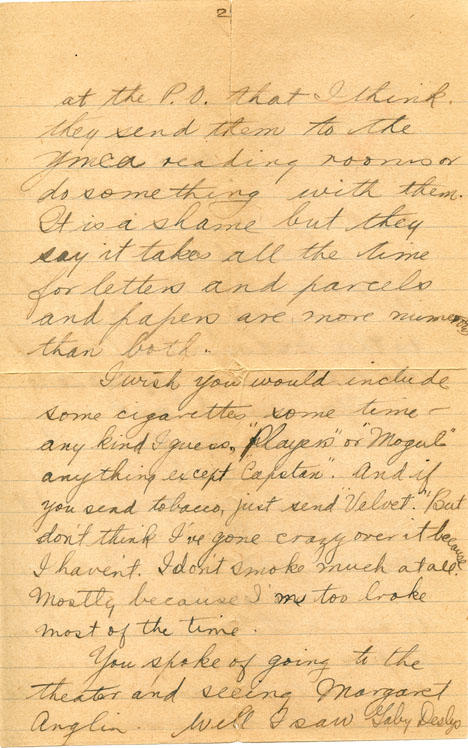 2
at the P.O. that I think
they send them to the
Ymca reading rooms or
do something with them.
It is a shame but they
say it takes all the time
for letters and parcels
and papers are more numerous
than both.
I wish you would include
some cigarettes some time –
any kind I guess, "Players" or "Mogul"
anything except Capstan". And if
you send tobacco, just send "Velvet". But
don't think I've gone crazy over it because
I haven't. I don't smoke much at all.
Mostly because I'm too broke
most of the time.
You spoke of going to the
theater and seeing Margaret
Anglin. Well I saw Gaby Deslys